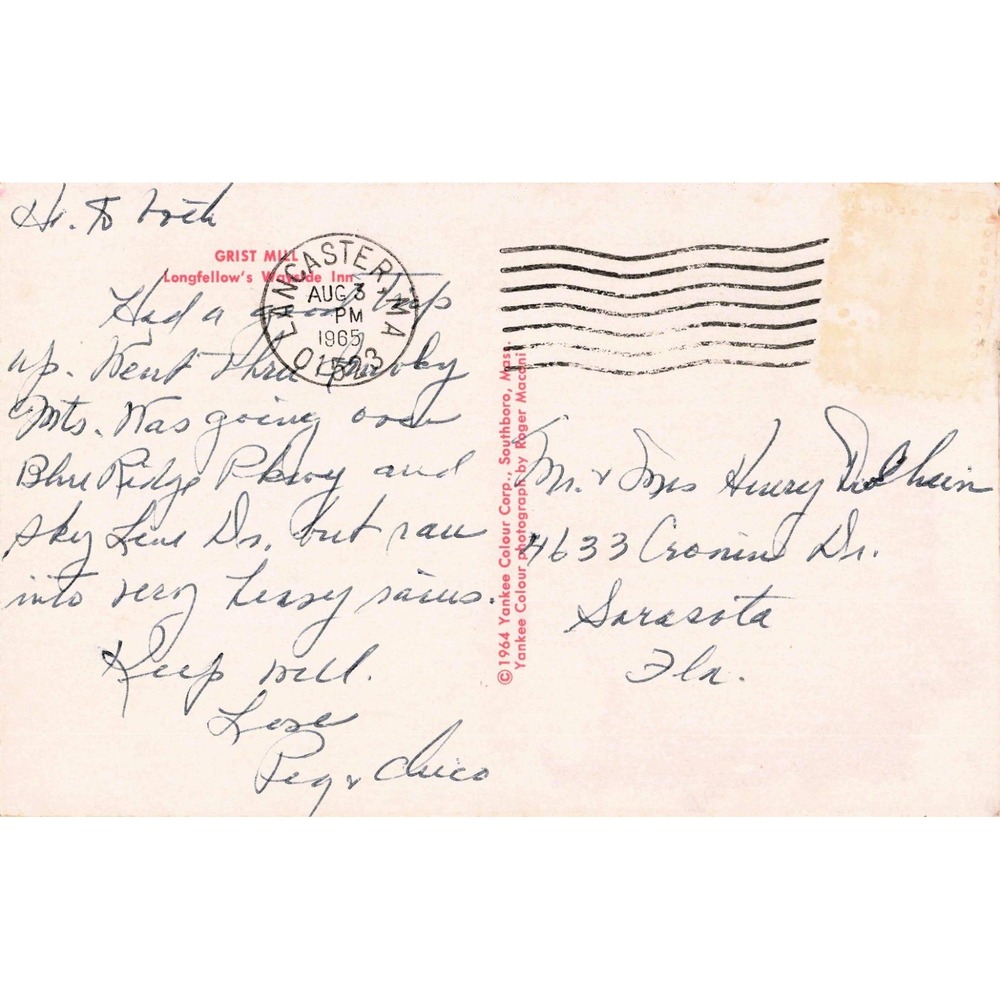 Hi. to both
GRIST MILL
Longfellow's Wayside Inn
Had a good trip
up. Went thru Smoky
Mts. Was going over
Blue Ridge Pkwy and
Sky Line Dr. but ran
into very heavy rains.
Keep well.
Love
Peg & Chico
LANCASTER, MA
AUG 3
PM
1965
01523
© 1964 Yankee Colour Corp., Southboro, Mass.
Yankee Colour photograph by Roger Macani
Mr. & Mrs Henry
4633 Cronin Dr.
Sarasota
Fla.